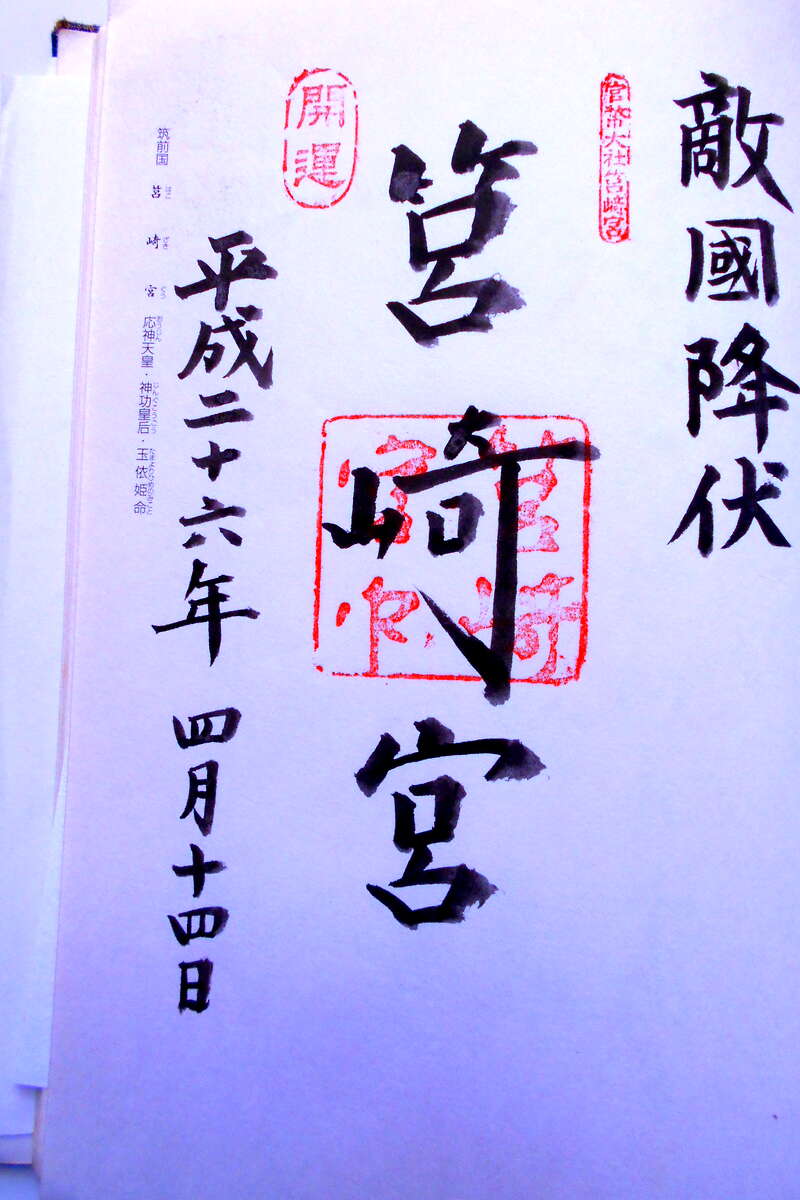 敵國降伏
官幣大社筥崎宮
筥崎宮
筥崎宮印
開運
平成二十六年 四月十四日
筑前国 筥崎宮 応神天皇・神功皇后・玉依姫命